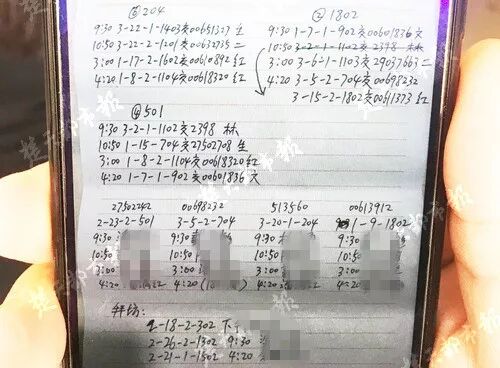 ③204
9:30 3-22-1-1403亥00651327 生
10:50 3-22-2-1201亥00632735 二
3:00 1-17-2-1602亥00610892 红
4:20 1-8-2-1104亥00618320 红
② 1802
9:30 1-7-1-902亥00601836 文
10:50 3-2-1-1102亥 2398 林
3:00 3-6-1-1103亥29037663 二
4:20 3-5-2-704亥00698232
3-15-2-1802亥00611373 红
④501
9:30 3-2-1-1102亥2398 林
10:50 1-15-704亥27502708 生
3:00 1-8-2-1104亥00618320 红
4:20 1-7-1-902亥00601836 文
27502242 00698232 513560 00613912
2-23-2-501 3-5-2-704 3-20-1-204 1-9-1802
9:30 9:30 9:30 9:30
10:50 10:50 10:50 10:50
3:00 3:00 3:00 3:00
4:20 4:20 4:20 4:20
拜访:
2-18-2-302 下
2-26-2-1302 9:30
2-21-1-1502 4:20
楚天都市报